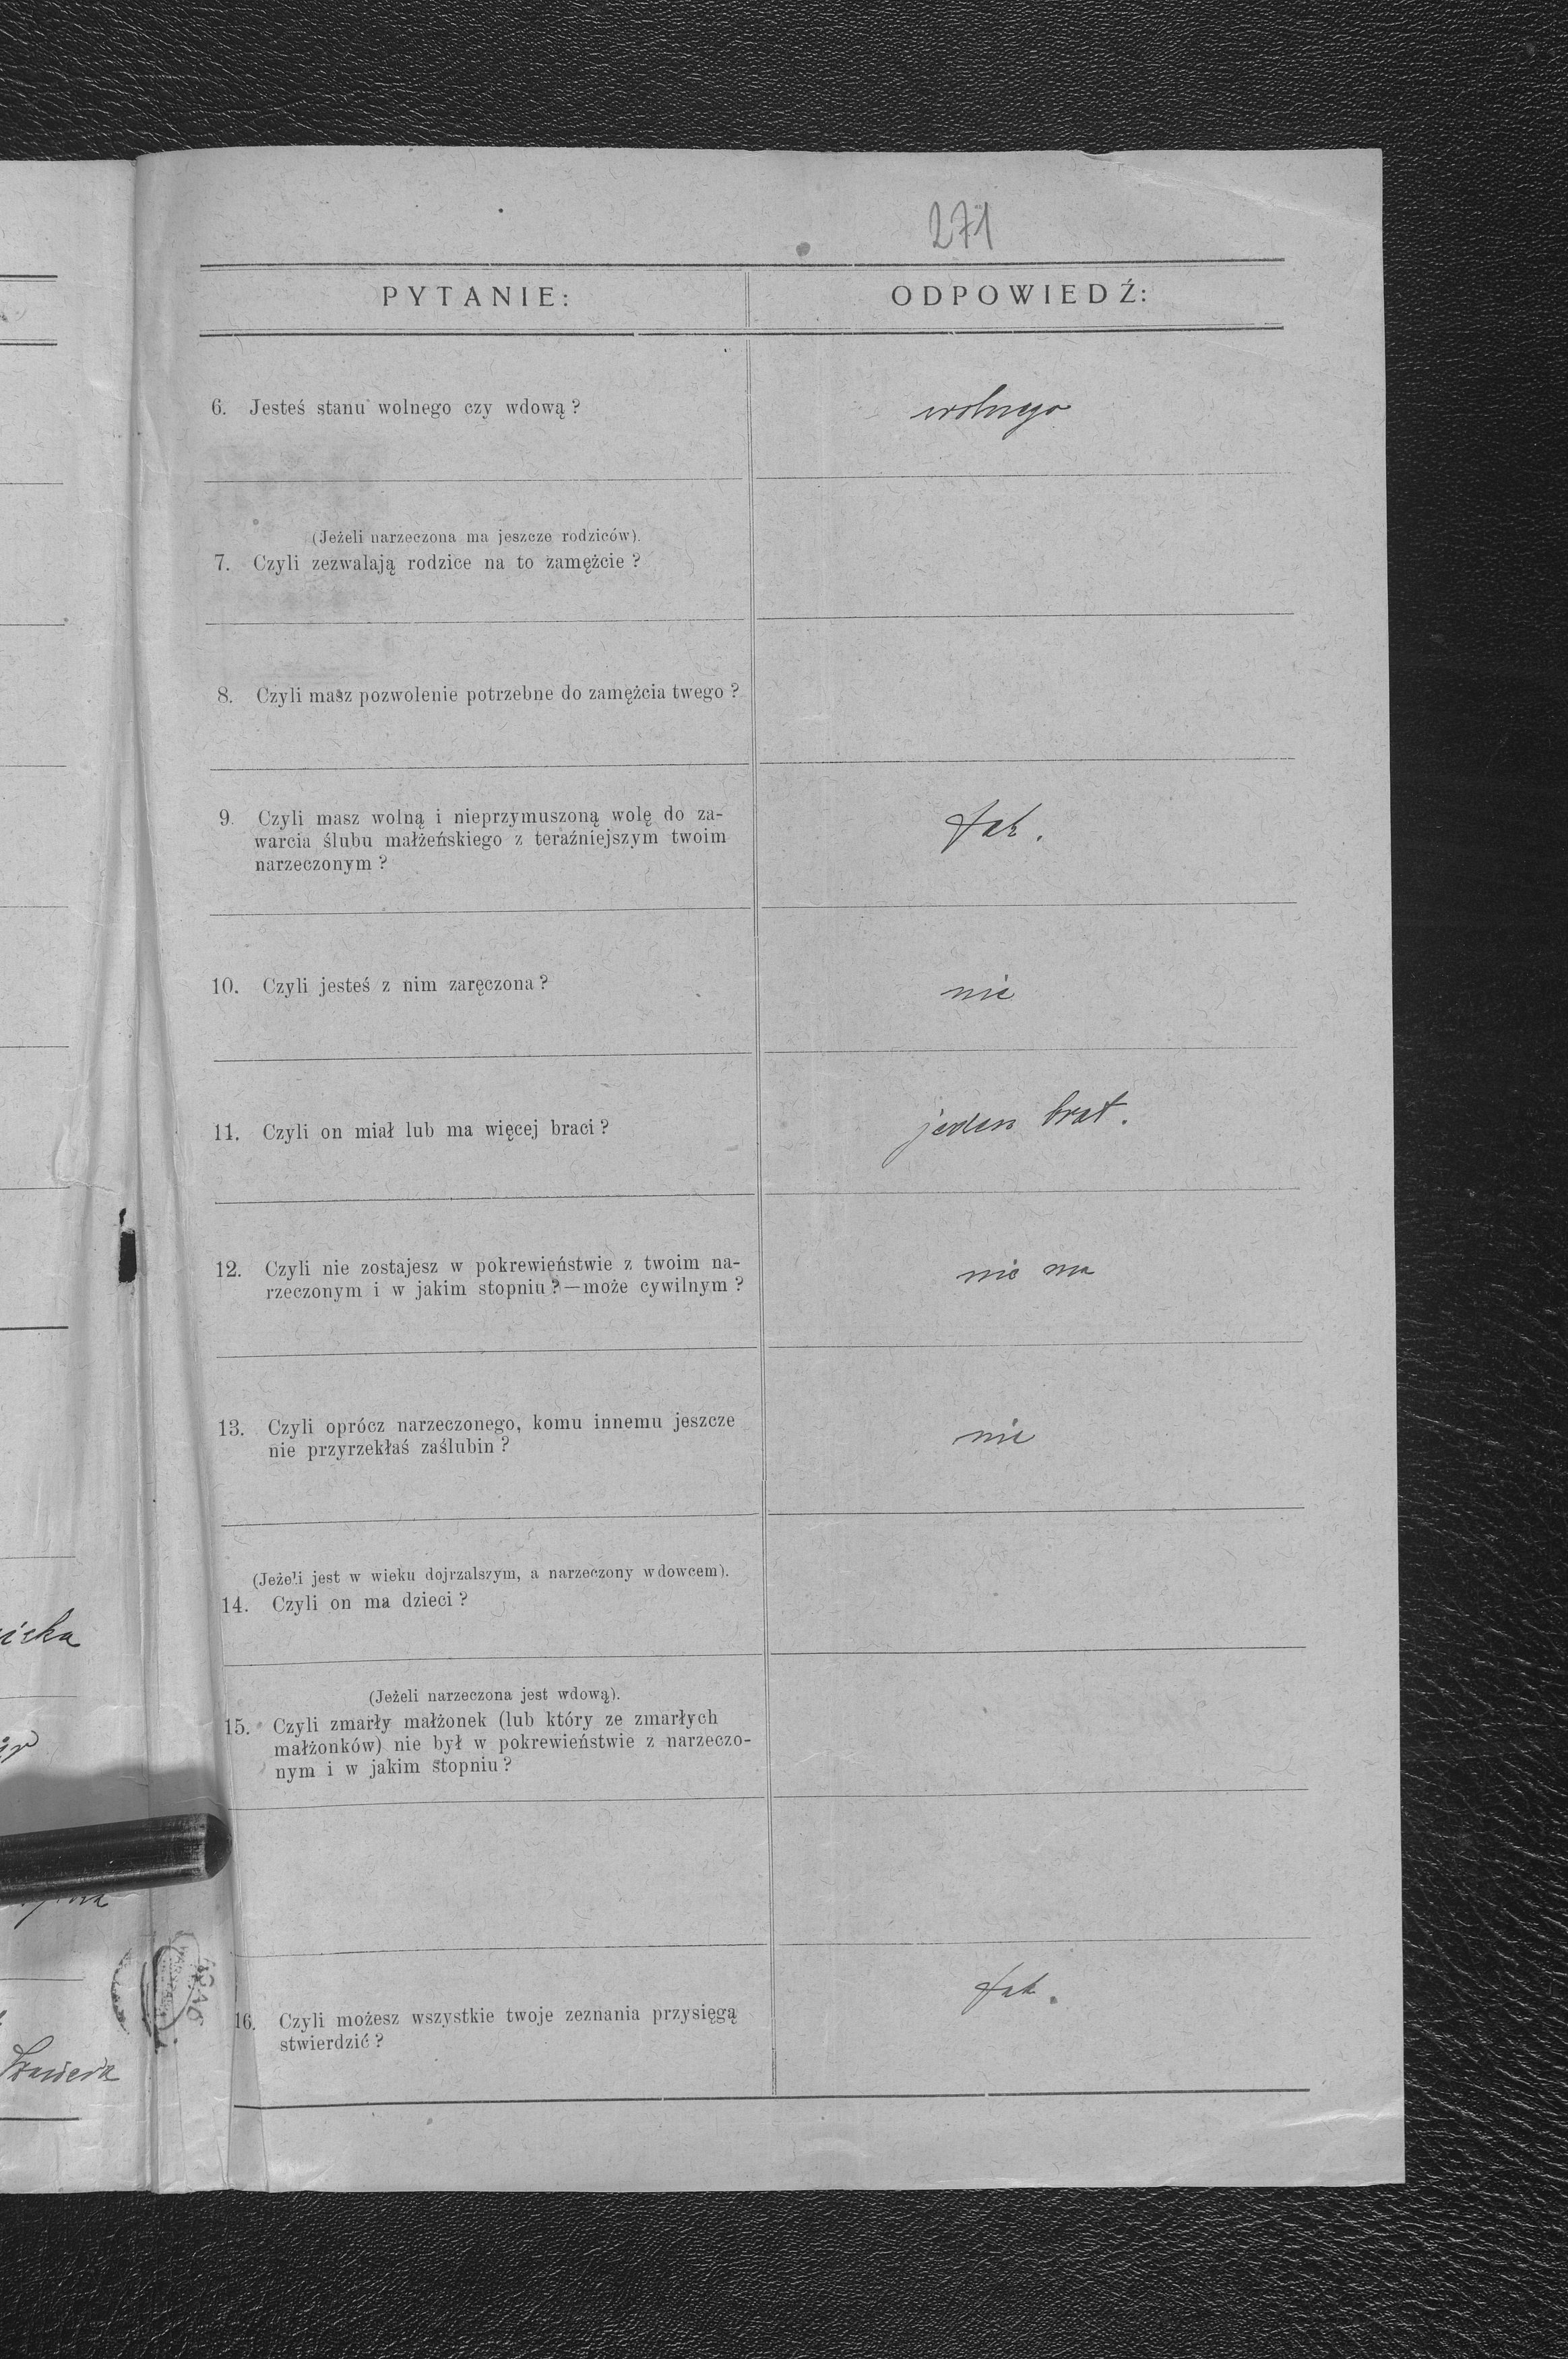 271
PYTANIE:
ODPOWIEDŹ:
6. Jesteś stanu wolnego czy wdową?
wolnego
(Jeżeli narzeczona ma jeszcze rodziców).
7. Czyli zezwalają rodzice na to zamężcie?
8. Czyli masz pozwolenie potrzebne do zamężcia twego?
9. Czyli masz wolną i nieprzymuszoną wolę do za-
warcia ślubu małżeńskiego z teraźniejszym twoim
narzeczonym?
tak.
10. Czyli jesteś z nim zaręczona?
nie
11. Czyli on miał lub ma więcej braci?
jeden brat.
12. Czyli nie zostajesz w pokrewieństwie z twoim na-
rzeczonym i w jakim stopniu?—może cywilnym?
nie ma
13. Czyli oprócz narzeczonego, komu innemu jeszcze
nie przyrzekłaś zaślubin?
nie
(Jeżeli jest w wieku dojrzalszym, a narzeczony wdowcem).
14. Czyli on ma dzieci?
(Jeżeli narzeczona jest wdową).
15. Czyli zmarły małżonek (lub który ze zmarłych
małżonków) nie był w pokrewieństwie z narzeczo-
nym i w jakim stopniu?
16. Czyli możesz wszystkie twoje zeznania przysięgą
stwierdzić?
tak.